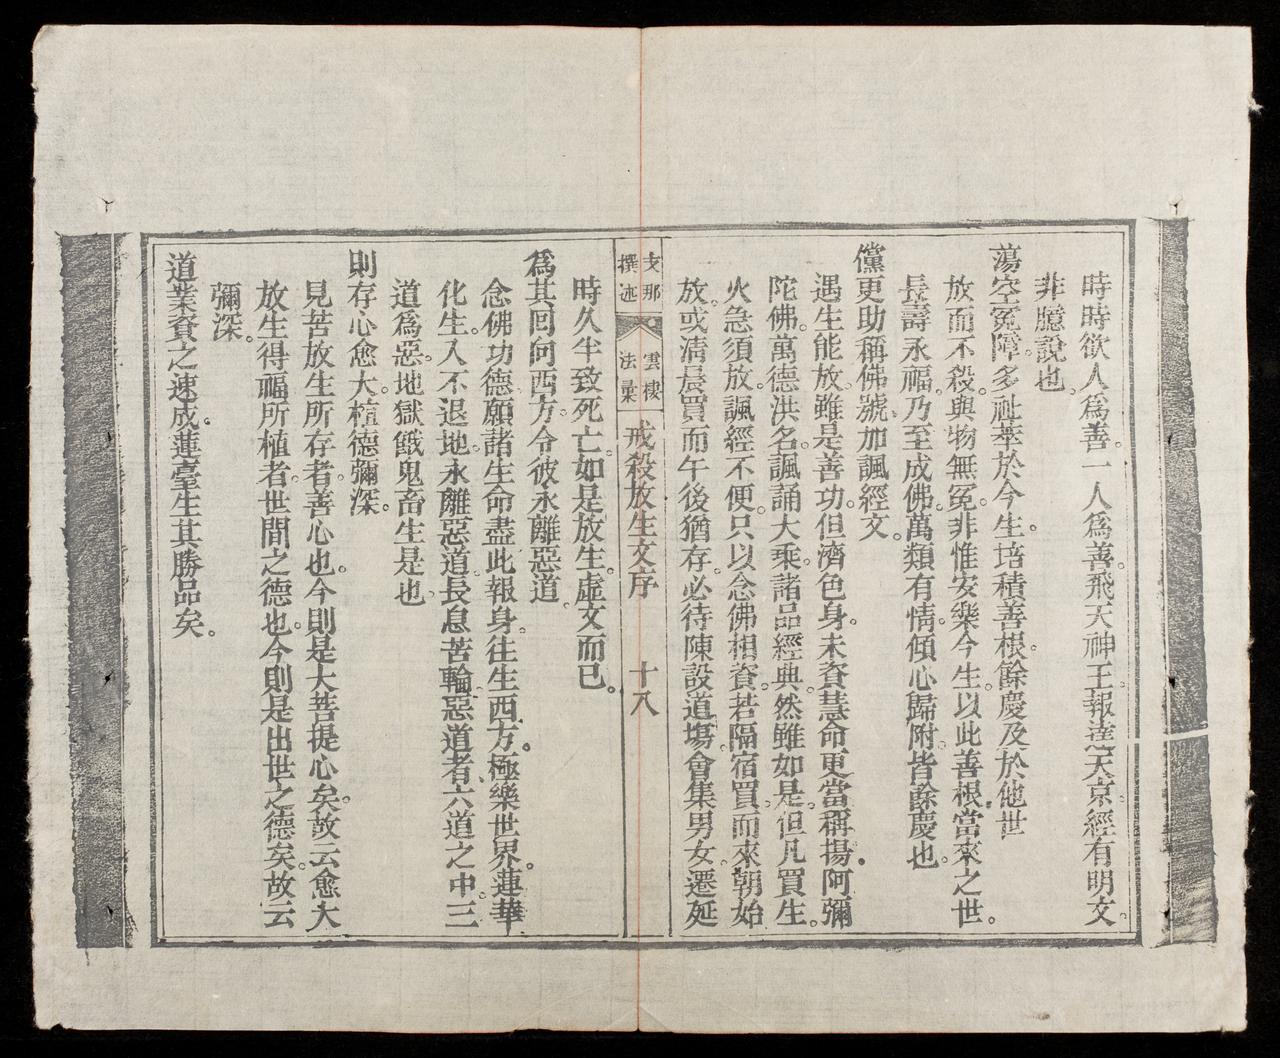 時時欲人爲善。一人爲善。飛天神王報達天京。經有明文。
非臆說也。
蕩空冤障。多祉萃於今生。培積善根。餘慶及於他世
放而不殺。與物無冤。非惟安樂今生。以此善根。當來之世。
長壽永福。乃至成佛。萬類有情。傾心歸附。皆餘慶也。
儻更助稱佛號。加諷經文。
遇生能放。雖是善功。但濟色身。未資慧命。更當稱揚。阿彌
陀佛。萬德洪名。諷誦大乘。諸品經典。然雖如是。但凡買生。
火急須放。諷經不便。只以念佛相資。若隔宿買而來朝始
放。或清晨買而午後猶存。必待陳設道塲。會集男女。遷延
支那
撰述
雲棲
法彙
戒殺放生文序 十八
時久。半致死亡。如是放生。虛文而已。
爲其回向西方。令彼永離惡道
念佛功德。願諸生命。盡此報身。往生西方。極樂世界。蓮華
化生。入不退地。永離惡道。長息苦輪。惡道者。六道之中。三
道爲惡。地獄餓鬼畜生是也。
則存心愈大。植德彌深。
見苦放生。所存者。善心也。今則是大菩提心矣。故云愈大
放生得福。所植者。世間之德也。今則是出世之德矣。故云
彌深。
道業資之速成。蓮臺生其勝品矣。